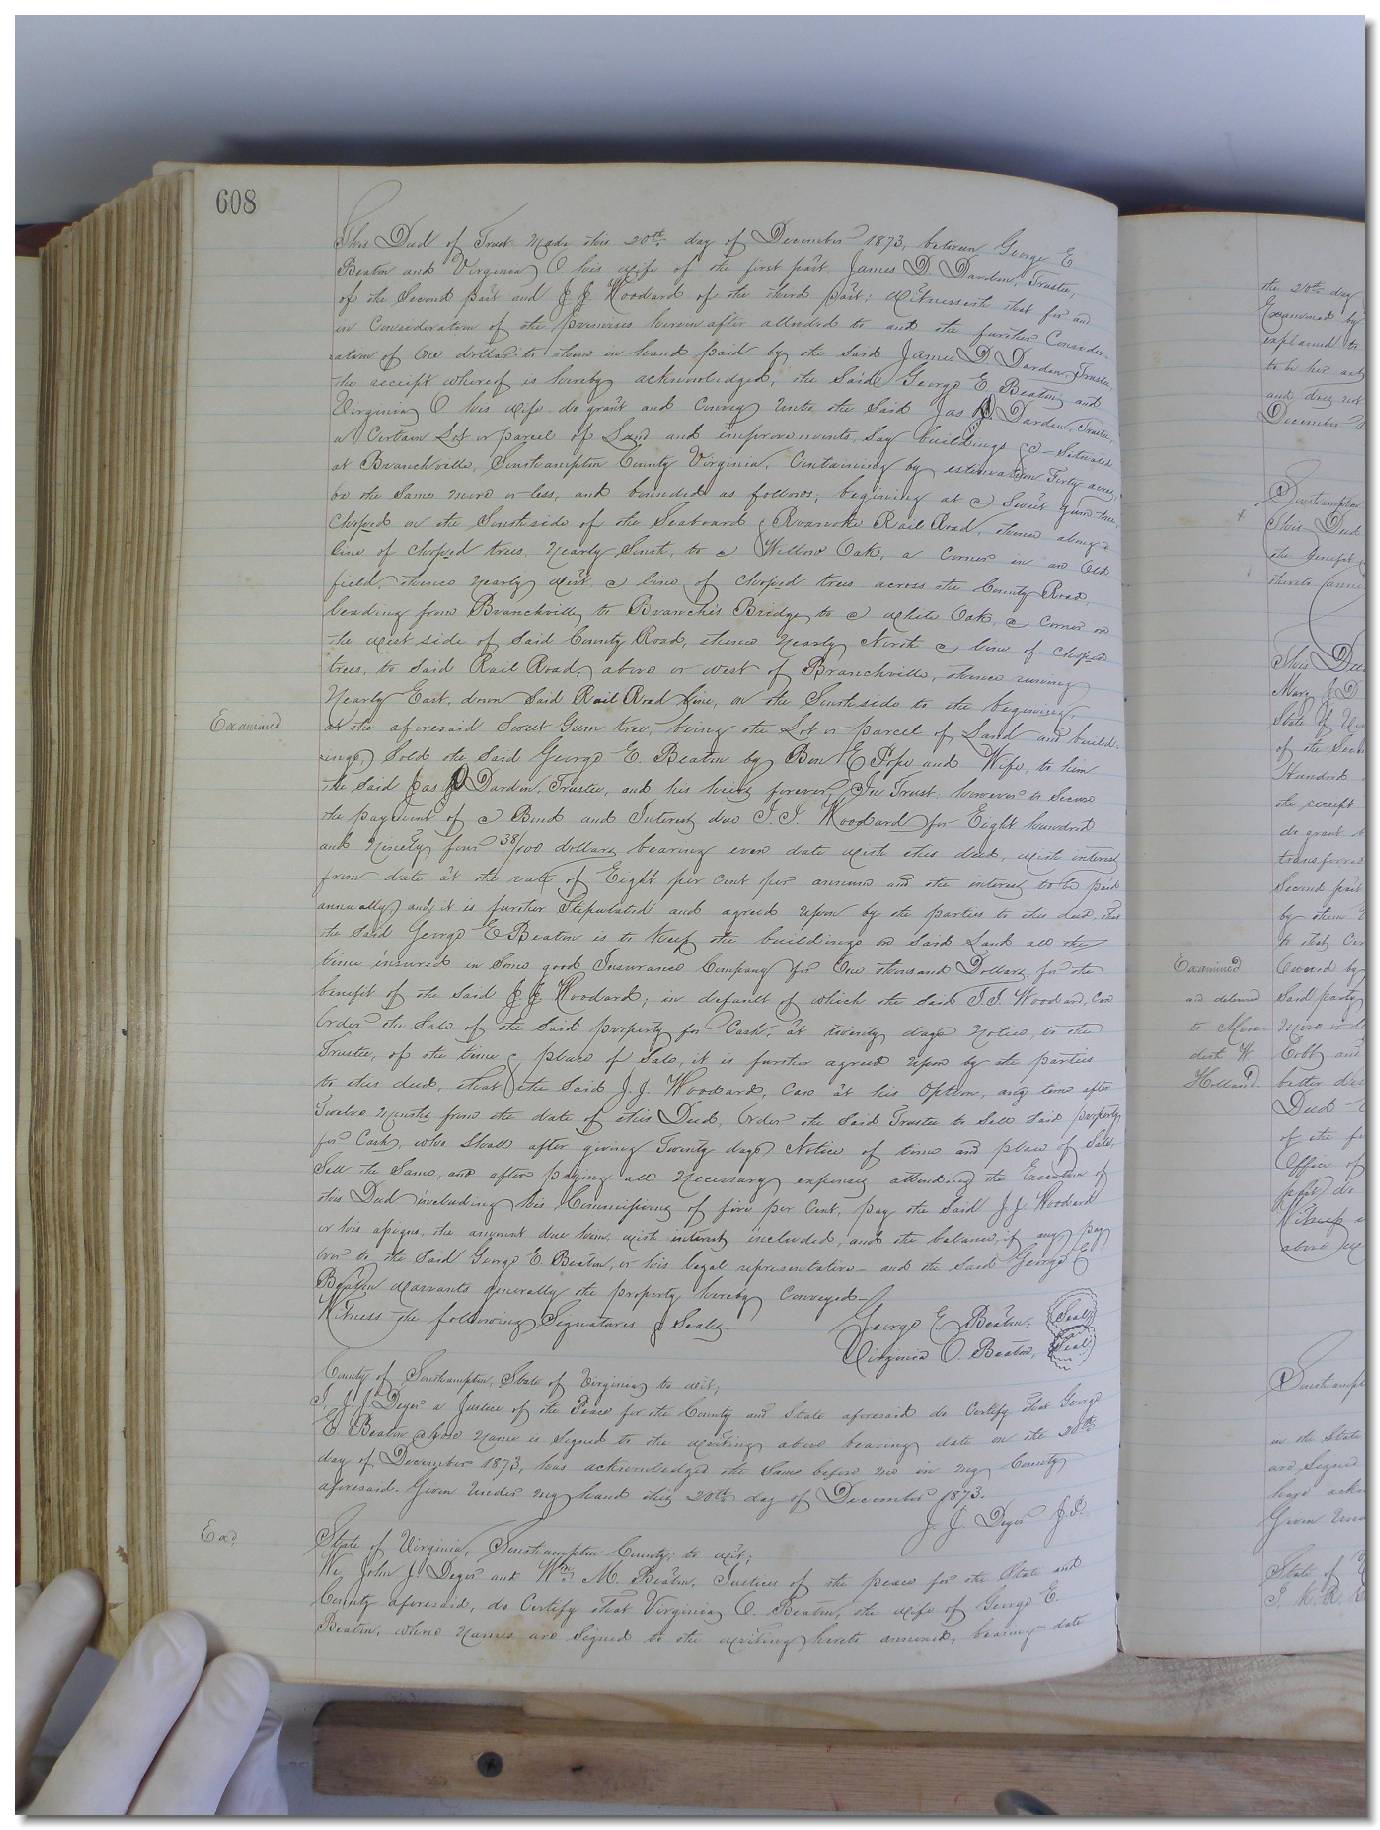 608
This Deed of Trust Made this 20th day of December 1873, between George E
Beaton and Virginia O his wife of the first part, James D. Darden, Trustee,
of the Second part and J J Woodard of the third part; Witnesseth that for and
in Consideration of the premises herein after alluded to and the further Consider-
ation of One dollar to them in hand paid by the said James D. Darden, Trustee,
the receipt whereof is hereby acknowledged, the Said George E. Beaton and
Virginia O his wife do grant and Convey Unto the Said Jas D. Darden, Trustee,
a Certain Lot or parcel of Land and improvements, Say buildings &c - Situated
at Branchville, Southampton County Virginia, Containing by estimation Forty acres,
be the Same more or less, and bounded as follows; begining at a Sweet gum tree,
Choped on the South side of the Seaboard & Roanoke Rail Road, thence along a
line of choped trees, Nearly South, to a Willow Oak, a Corner in an Old
field, thence Nearly West, a line of Choped trees across the County Road,
leading from Branchville to Branche's Bridge, to a White Oak, a Corner on
the West side of Said County Road, thence Nearly North a line of Choped
trees, to Said Rail Road, above or west of Branchville, thence running
Nearly East, down Said Rail Road Line, on the South side to the begining,
at the aforesaid Sweet Gum tree, being the Lot or parcel of Land and build-
ings, Sold the Said George E. Beaton by Ben E Pope and Wife, to him
the Said Jas D Darden, Trustee, and his heirs forever, In Trust, however to Secure
the payment of a Bond and Interest due J. J. Woodard for Eight hundred
and Ninety four 38/100 dollars bearing even date with this deed, with interest
from date at the rate of Eight per cent per annum and the interest to be paid
annually, and it is further Stipulated and agreed upon by the parties to this deed, that
the Said George E Beaton is to Keep the buildings on Said Land all the
time insured in Some good Insurance Company for One thousand Dollars, for the
benefit of the Said J. J. Woodard; in default of which the Said J. J. Woodard, Can
Order the Sale of the Said property for Cash, at twenty days Notice, to the
Trustee, of the time & place of Sale, it is further agreed upon by the parties
to this deed, that the Said J. J. Woodard, Can at his Option, any time after
Twelve Months from the date of this Deed, Order the Said Trustee to Sell Said property,
for Cash, who Shall after giving Twenty days Notice of time and place of Sale,
Sell the Same, and after paying all Necessary expenses attending the Execution of
this Deed including his Commissions of five per Cent, pay the Said J. J. Woodard
or his assigns, the amount due him, with interest included, and the balance, if any, pay
over to the Said George E. Beaton, or his legal representative - and the Said George E
Beaton warrants generally the property hereby Conveyed -
Witness the following Signatures & Seals.
George E Beaton, Seal
Virginia O. Beaton, Seal
County of Southampton, State of Virginia, to wit;
I, J. J. Deyer a Justice of the Peace for the County and State aforesaid do Certify that George
E. Beaton whose Name is Signed to the writing above bearing date on the 20th
day of December 1873, has acknowledged the Same before me in my County
aforesaid. Given Under my hand this 20th day of December 1873.
J. J. Deyer J.P.
State of Virginia, Southampton County; to wit;
We, John J. Deyer and Wm. M. Beaton, Justices of the peace for the State and
County aforesaid, do Certify that Virginia O. Beaton, the wife of George E.
Beaton, whose Names are Signed to the writing hereto annexed, bearing date
Examined
Exd
the 20th day
Examined by
explained to
to be her act
and does not
December
Southampton
This Deed
the
thereto anne
This Dee
Mary J D
State of
of the Sec
Hundred
the receipt
do grant
transferred
Second part
by them
to that Cer
Covered by
Said party
More or
Cobb, and
better des
Deed
of the
Office of
do
Witness
above
Examined
and delivered
to Mere-
dith W.
Holland
Southampt
in the State
are Signed
have ackn
Given Und
State of